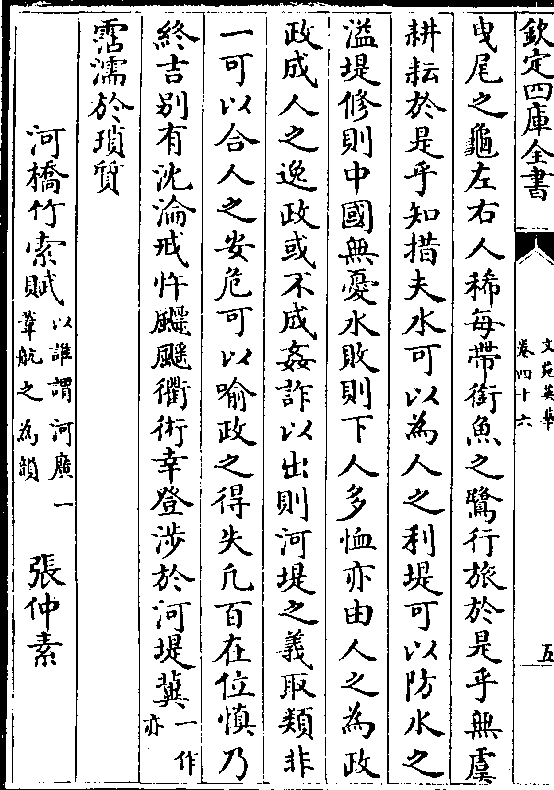 欽定四庫全書
文苑英華
卷四十六
五
曳尾之龜左右人稀每帶銜魚之鷺行旅於是乎無虞
耕耘於是乎知措夫水可以為人之利堤可以防水之
溢堤修則中國無憂水敗則下人多恤亦由人之為政
政成人之逸政或不成姦詐以出則河堤之義取類非
一可以合人之安危可以喻政之得失凡百在位慎乃
終吉别有沈淪戒忤飄颻衢術幸登涉於河堤冀一作亦
霑濡於瑣質
河橋竹索賦以誰謂河廣一葦航之為韻 張仲素